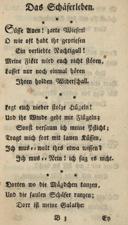 Das Schäferleben.
Süsse Auen! zarte Wiesen!
O wie oft habt ihr gepriesen
Ein verliebte Nachtigall!
Meine Flöte wird euch nicht stören,
Lasset nur noch einmal hören
Ihren holden Widerschall.
Legt euch nieder stolze Hügeln!
Und ihr Winde geht mit Flügeln;
Sonst versaum ich meine Pflicht;
Tragt mich fort mit lauen Füssen,
Ich mus = = wenn ihr es etwan wissen?
Ich mus = = Nein! ich sag es nicht.
Dorten wo die Mägdchen tanzen,
Und die faulen Schäfer ranzen;
Dort ist meine Galathee
B 3